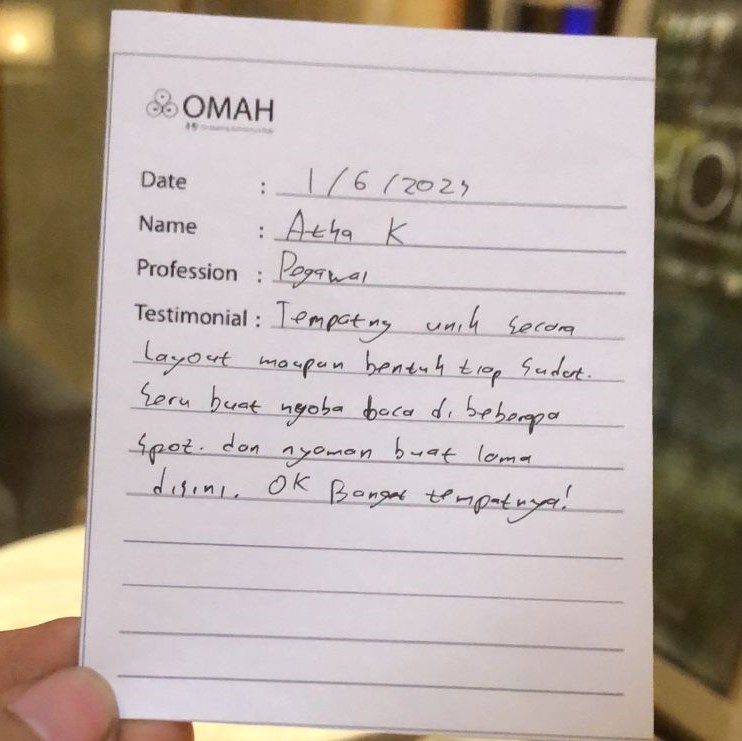 OMAH
Date : 1/6/2025
Name : Atha K
Profession : Pegawai
Testimonial : Tempatny unik secara
layout maupun bentuk tiap sudut.
Seru buat ngoba baca di beberapa
spot. dan nyaman buat lama
disini. OK Banget tempatnya!
HO